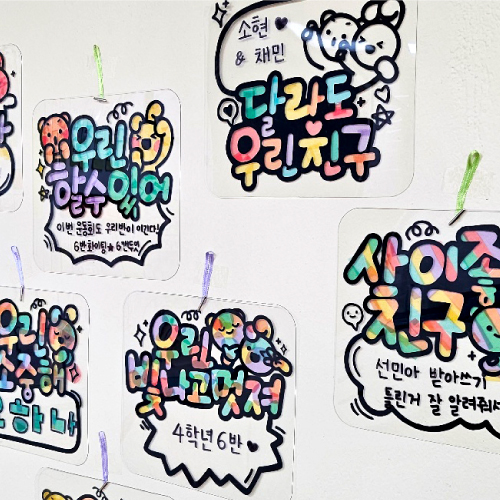 소현 ♥
& 채민
달라도
우린 친구
우린
할수있어
이번 운동회도 우리반이 이긴다!
6반 화이팅★
사이좋
친구
선민아 받아쓰기
틀린거 잘 알려줘서
우린
소중해
하나
우린
빛나고멋져
4학년 6반 ♥